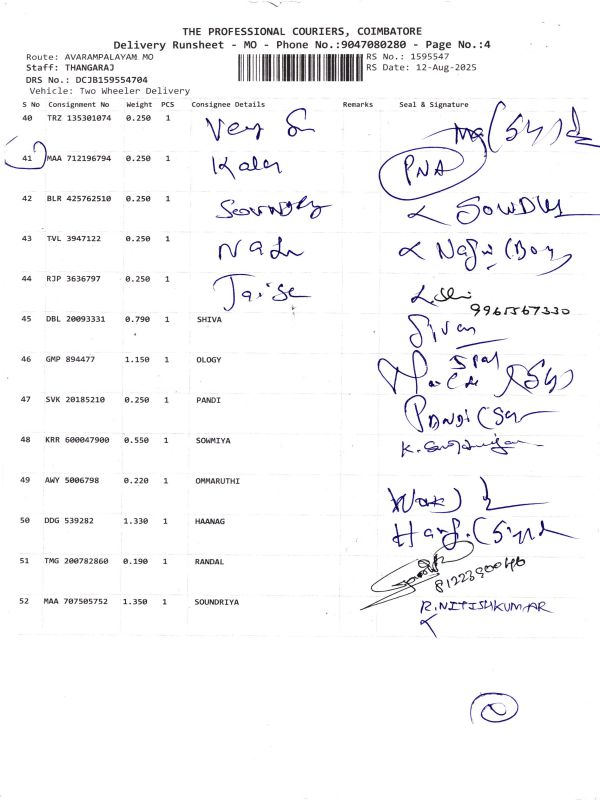 THE PROFESSIONAL COURIERS, COIMBATORE
Delivery Runsheet - MO - Phone No.:9047080280 - Page No.:4
Route: AVARAMPALAYAM MO RS No.: 1595547
Staff: THANGARAJ RS Date: 12-Aug-2025
DRS No.: DCJB159554704
Vehicle: Two Wheeler Delivery
S No Consignment No Weight PCS Consignee Details Remarks Seal & Signature
40 TRZ 135301074 0.250 1
41 MAA 712196794 0.250 1 Kalai PNA
42 BLR 425762510 0.250 1
43 TVL 3947122 0.250 1
44 RJP 3636797 0.250 1
9965567330
45 DBL 20093331 0.790 1 SHIVA
46 GMP 894477 1.150 1 OLOGY
47 SVK 20185210 0.250 1 PANDI
48 KRR 600047900 0.550 1 SOWMIYA
49 AWY 5006798 0.220 1 OMMARUTHI
50 DDG 539282 1.330 1 HAANAG
51 TMG 200782860 0.190 1 RANDAL
52 MAA 707505752 1.350 1 SOUNDRIYA R.NITISHKUMAR